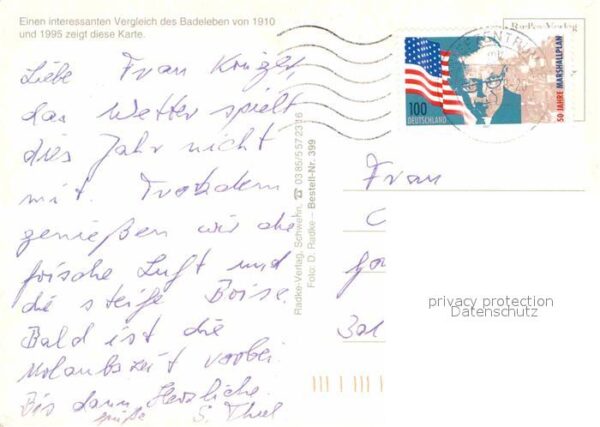 Einen interessanten Vergleich des Badeleben von 1910
und 1995 zeigt diese Karte.
Liebe Frau
das Wetter spielt
dies Jahr nicht
mit. Trotzdem
genießen wir die
frische Luft und
die steife Brise.
Bald ist die
Urlaubszeit vorbei.
Bis dann. Herzliche
Grüße S. Thiel
Radke-Verlag, Schwerin, ☎ 0385/5572316
Foto: D. Radke – Bestell-Nr. 399
Radke-Verlag
BRIEFZENTRUM
100
DEUTSCHLAND
50 JAHRE MARSHALLPLAN
Frau
privacy protection
Datenschutz